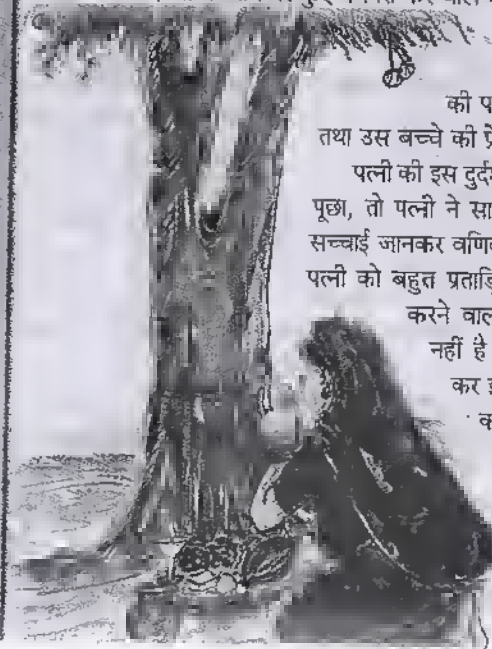 की प
तथा उस बच्चे की प्रे
पत्नी की इस दुर्द
पूछा, तो पत्नी ने सा
सच्चाई जानकर वणि
पत्नी को बहुत प्रताड़ि
करने वाल
नहीं है
कर इ
क